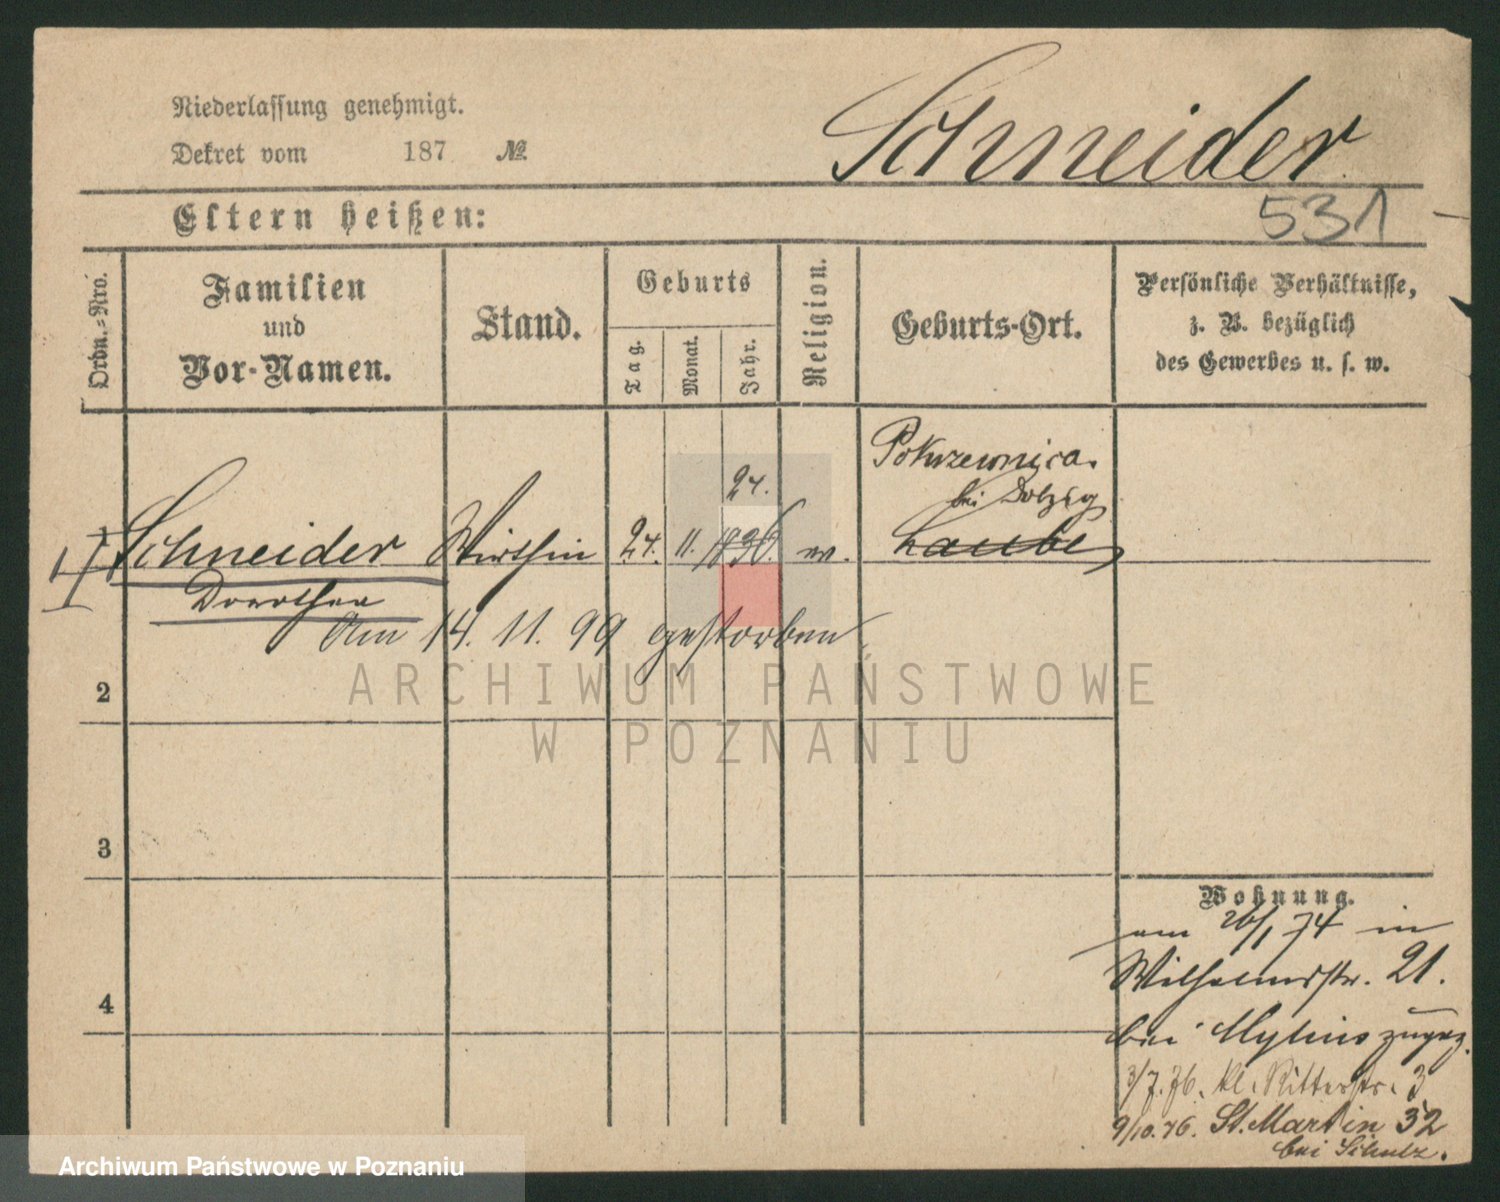 Niederlassung genehmigt.
Dekret vom 187 №
Schneider
531
Eltern heißen:
Ordn.-Nro.
Familien
und
Vor-Namen.
Stand.
Geburts
Tag.
Monat.
Jahr.
Religion.
Geburts-Ort.
Persönliche Verhältnisse,
z. B. bezüglich
des Gewerbes u. s. w.
Pokrzewnica
bei Dolzig
24.
1 Schneider Wirthin 24. 11. 1836. Laube
Dorothea
Am 14. 11. 99 gestorben
2
3
4
Wohnung.
am 26/1 74 in
Wilhelmstr. 21.
bei Mylius zugez.
3/7. 76. kl. Ritterstr. 3
9/10. 76. St. Martin 32
bei Schulz.
ARCHIWUM PAŃSTWOWE
W POZNANIU
Archiwum Państwowe w Poznaniu